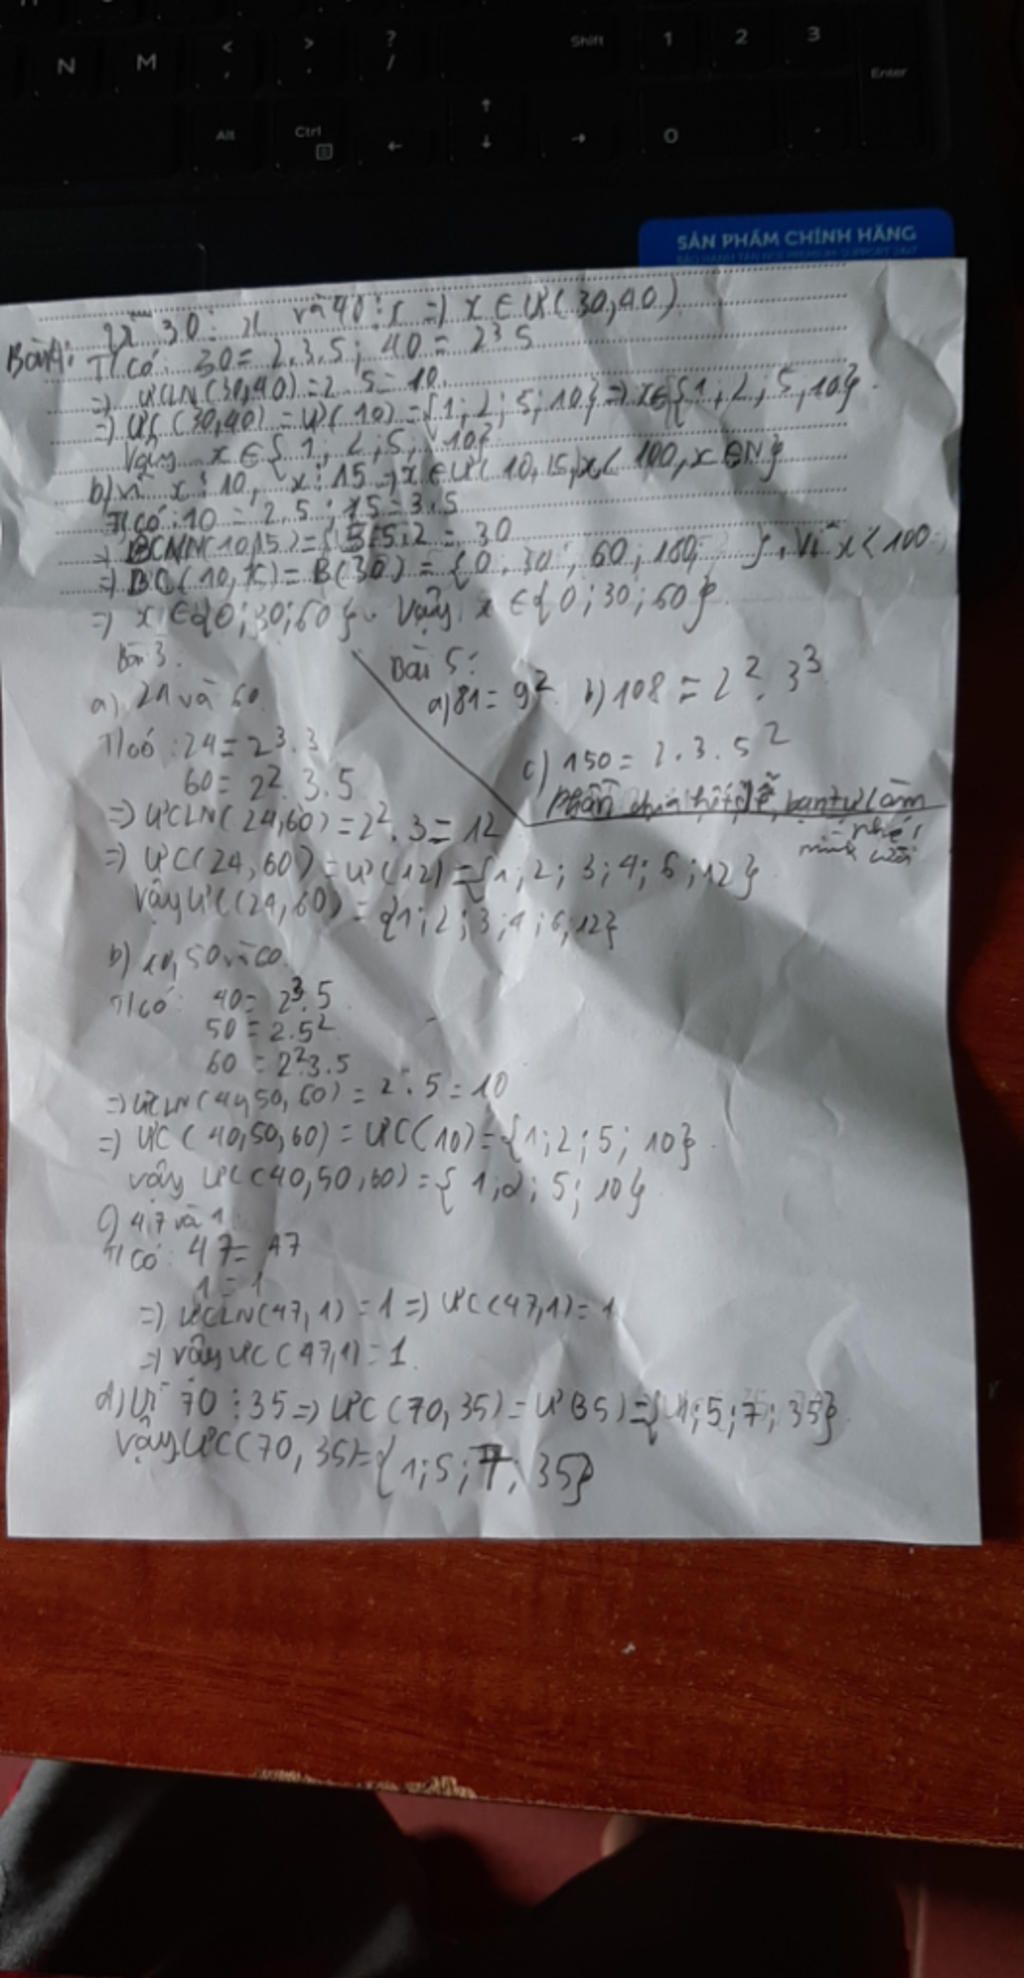 N M < , > . ? / Shift 1 2 3 Enter
Alt Ctrl ← ↑ ↓ → 0 .
SẢN PHẨM CHÍNH HÃNG
Bài 4: 30 ⋮ x và 40 ⋮ x => x ∈ ƯC(30,40)
Ta có: 30 = 2.3.5; 40 = 2³.5
=> ƯCLN(30,40) = 2.5 = 10
=> ƯC(30,40) = Ư(10) = {1; 2; 5; 10} => x ∈ {1; 2; 5; 10}.
Vậy x ∈ {1; 2; 5; 10}
b) Vì x ⋮ 10, x ⋮ 15 => x ∈ ƯC(10,15, x < 100, x ∈ N}
Ta có: 10 = 2.5; 15 = 3.5
=> BCNN(10,15) = 30
=> BC(10,15) = B(30) = {0; 30; 60; } , vì x < 100
=> x ∈ {0; 30; 60}. Vậy x ∈ {0; 30; 60}.
Bài 3.
a) 24 và 60.
Ta có: 24 = 2³.3
60 = 2².3.5
=> ƯCLN(24,60) = 2².3 = 12
=> ƯC(24,60) = Ư(12) = {1; 2; 3; 4; 6; 12}
Vậy ƯC(24,60) = {1; 2; 3; 4; 6; 12}
Bài 5:
a) 81 = 9² b) 108 = 2².3³
c) 150 = 2.3.5²
Phần dễ bạn tự làm
nhé!
mình
b) 40, 50 và 60.
Ta có: 40 = 2³.5
50 = 2.5²
60 = 2²3.5
=> ƯCLN(40,50,60) = 2.5 = 10
=> ƯC(40,50,60) = ƯC(10) = {1; 2; 5; 10}.
Vậy ƯC(40,50,60) = {1; 2; 5; 10}
c) 47 và 1.
Ta có: 47 = 47
1 = 1
=> ƯCLN(47,1) = 1 => ƯC(47,1) = 1
=> Vậy ƯC(47,1) = 1.
d) Vì 70 ⋮ 35 => ƯC(70,35) = Ư(35) = {1; 5; 7; 35}
Vậy ƯC(70,35) = {1; 5; 7; 35}